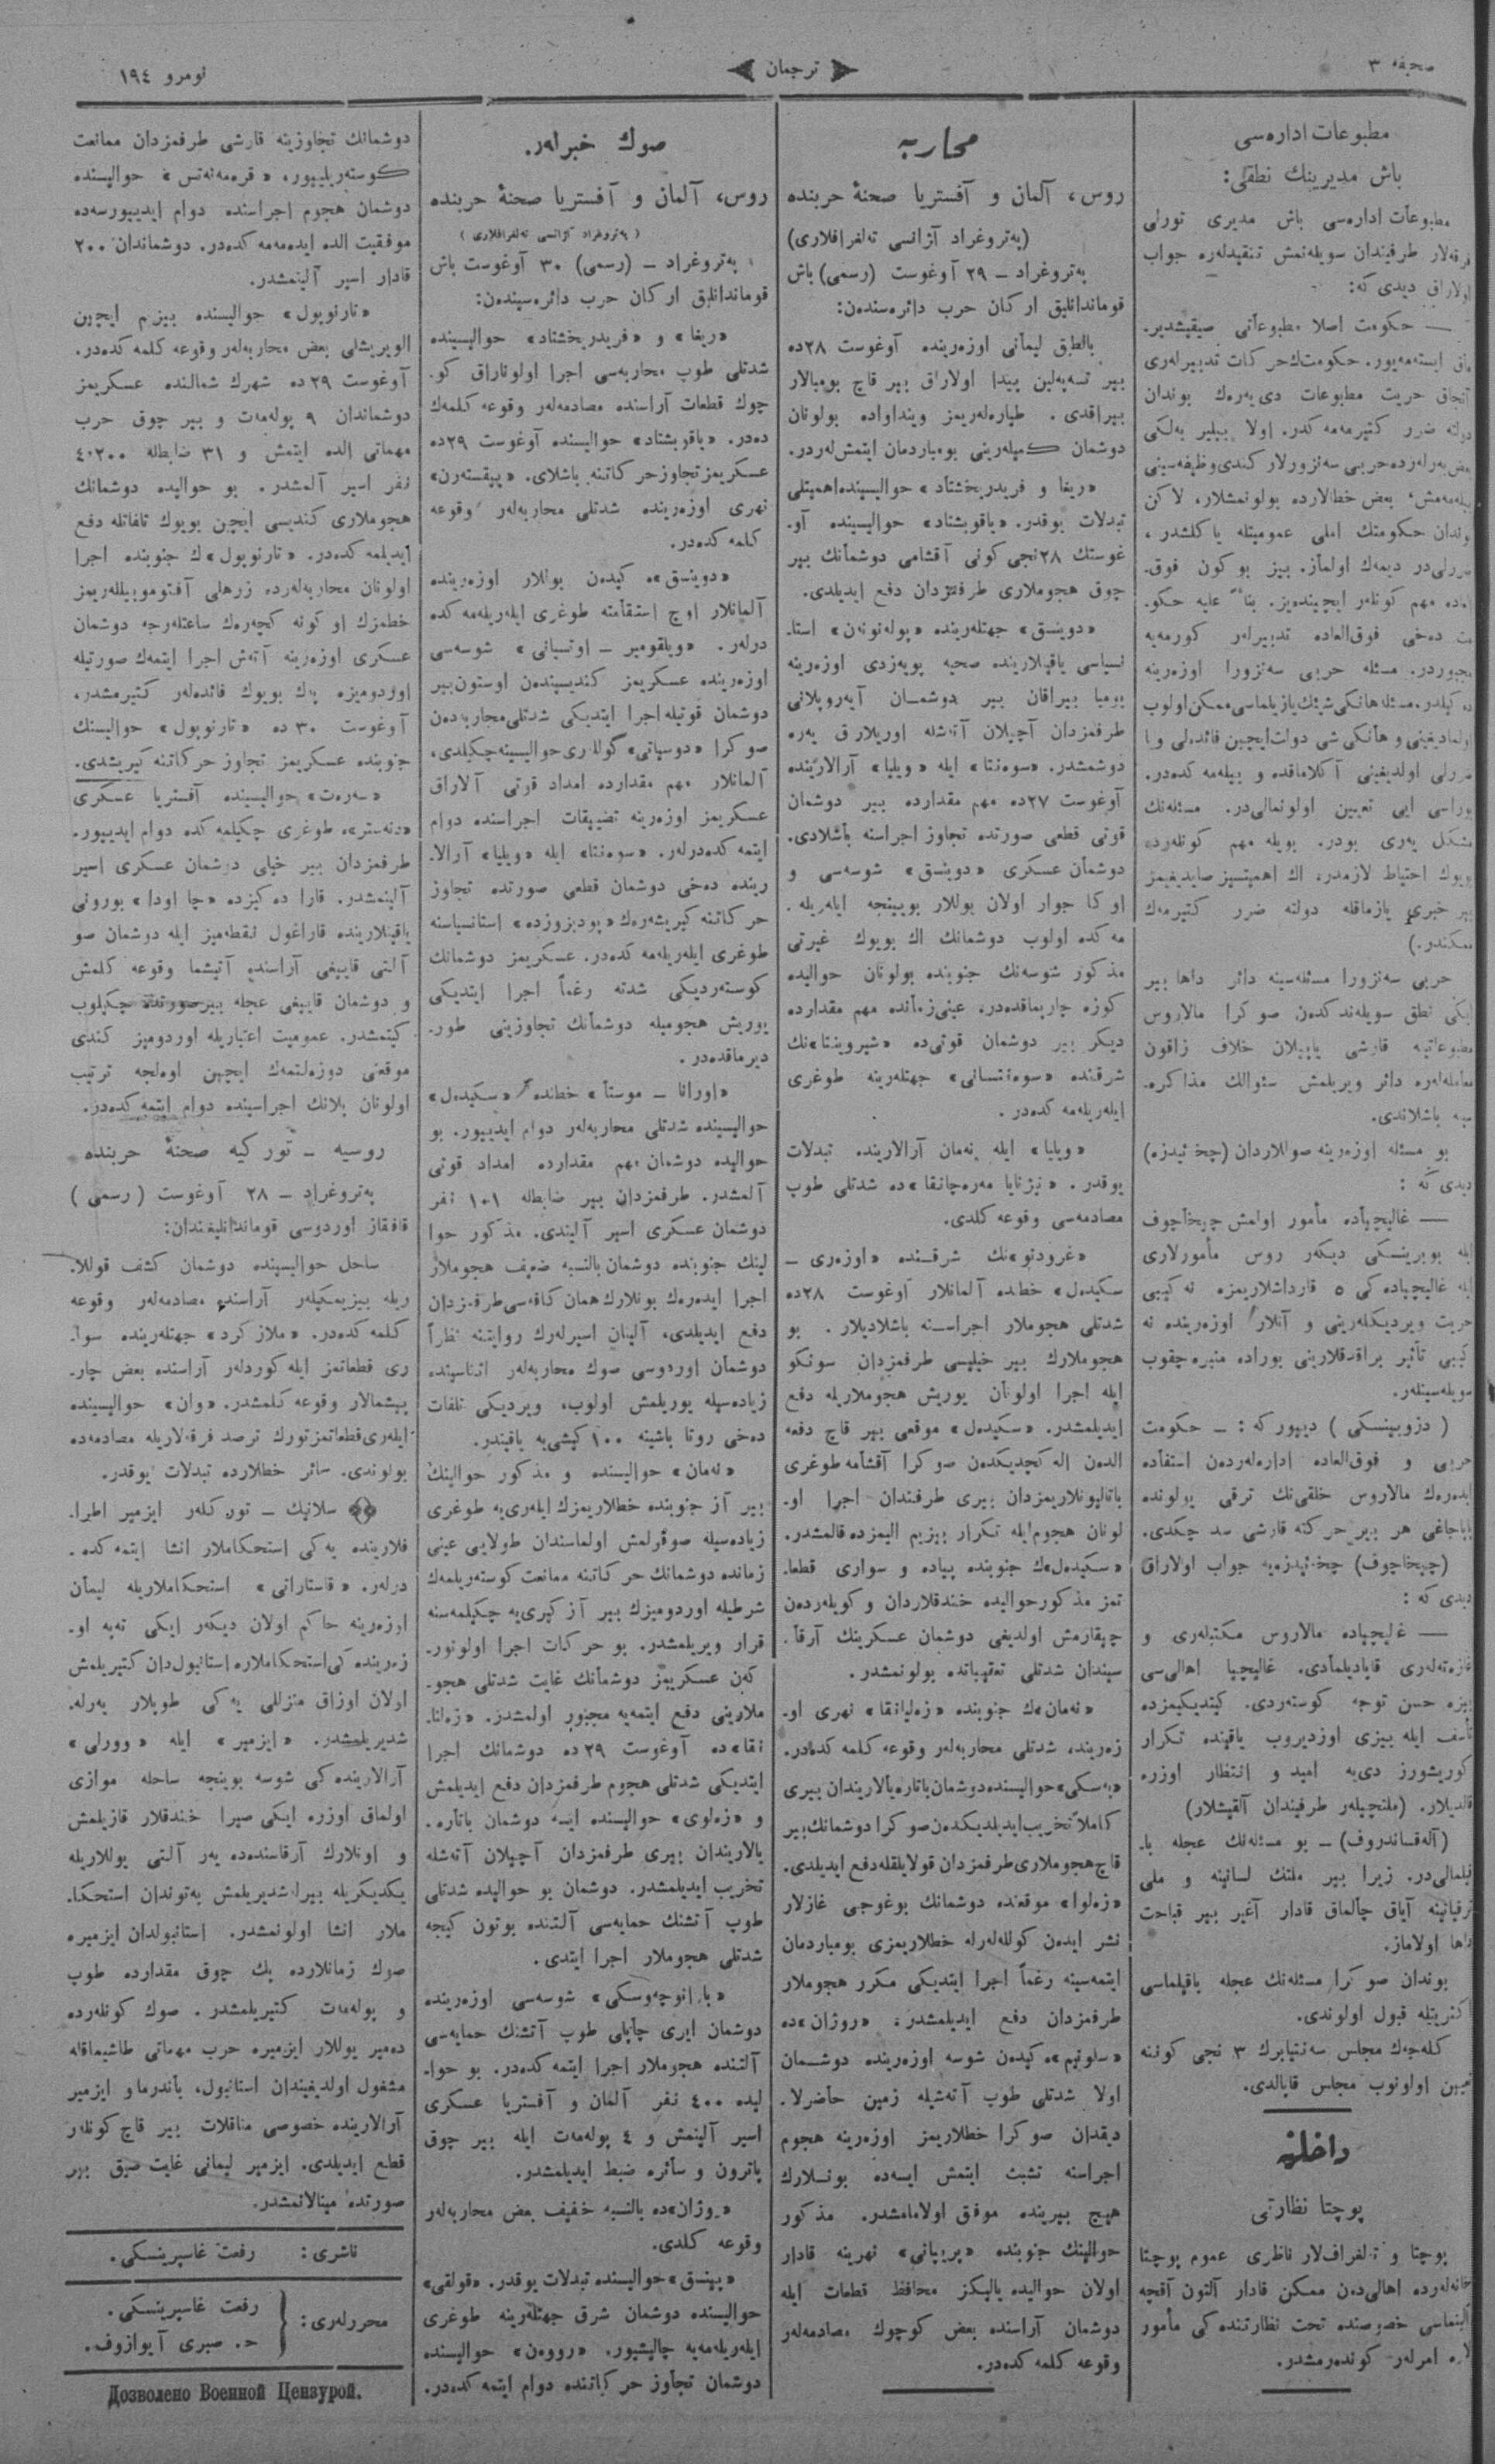 صحیفه ۳
ترجمان
نومرو ١٩٤
مطبوعات اداره‌سی
باش مدیرینك نطقی:
مطبوعات اداره‌سی باش مدیری تورلی
فرقه‌لار طرفیندن سویله‌نمش تنقیدلره جواب
اولاراق دیدی كه:
— حكومت اصلا مطبوعاتی صیقیشدیر-
ماق ایسته‌مه‌یور. حكومتك حركات تدبیرله‌ری
آنجاق حریت مطبوعات دی‌یه‌رك بوندان
دولته ضرر كتیرمه‌مه‌كدر. اولا بیلیر به‌لكی
بعض یه‌رله‌رده حربی سه‌نزورلار كندی وظیفه‌سینی
بیله‌مه‌مش، بعض خطالارده بولونمشلار، لاكن
بوندان حكومتك املی عمومیتله یاكلشدر،
ضررلی‌در دیمه‌ك اولماز. بیز بو كون فوق-
العاده مهم كونله‌ر ایچینده‌یز. بناءً علیه حكو-
مت ده‌خی فوق‌العاده تدبیرله‌ر كورمه‌یه
مجبوردر. مسئله حربی سه‌نزورا اوزه‌رینه
ده‌كیلدر، مسئله هانكی شیئك یازیلماسی ممكن اولوب
اولمادیغینی و هانكی شی دولت ایچین فائده‌لی و یا
ضررلی اولدیغینی آكلاماقده و بیله‌مه كده‌در.
بوراسی ایی تعیین اولونمالی‌در. مسئله‌نك
مشكل یه‌ری بودر. بویله مهم كونله‌رده
بویوك احتیاط لازمدر، اك اهمیتسیز صایدیغیمز
بیر خبری یازماقله دولته ضرر كتیرمه‌ك
ممكندر.)
حربی سه‌نزورا مسئله‌سینه دائر داها بیر
ایكی نطق سویله‌ندكدن صوكرا مالاروس
مطبوعاتیه قارشی یاپیلان خلاف زاقون
معامله‌له‌ره دائر ویریلمش سئوالك مذاكره-
سیه باشلاندی.
بو مسئله اوزه‌رینه صوللاردان (چخه‌ئیدزه)
دیدی كه :
— غالیچیاده مأمور اولمش چیخاچوف
ایله بوبرینسكی دیكه‌ر روس مأمورلاری
ایله غالیچیاده‌كی ٥ قارداشلاریمزه نه كیبی
حریت ویردیكله‌رینی و آنلار اوزه‌رینده نه
كیبی تأثیر براقدقلارینی بوراده منبره چقوب
سویله‌سینله‌ر.
( دزوبینسكی ) دییور كه : — حكومت
حربی و فوق‌العاده اداره‌له‌ردن استفاده
ایده‌رك مالاروس خلقی‌نك ترقی یولونده
یاپاجاغی هر بیر حركته قارشی سد چكدی.
(چیخاچوف) چخه‌ئیدزه‌یه جواب اولاراق
دیدی كه :
— غالیچیاده مالاروس مكتبله‌ری و
غازه‌ته‌له‌ری قاپادیلمادی. غالیچیا اهالی‌سی
بیزه حسن توجه كوسته‌ردی. كیتدیكیمزده
تأسف ایله بیزی اوزدیروب یاقینده تكرار
كوریشورز دی‌یه امید و انتظار اوزره
قالدیلار. (ملتچیله‌ر طرفیندان آلقیشلار)
(آله‌قساندروف) — بو مسئله‌نك عجله با-
قیلمالی‌در. زیرا بیر ملتك لسانینه و ملی
ترقیاتینه آیاق چالماق قادار آغیر بیر قباحت
داها اولاماز.
بوندان صوكرا مسئله‌نك عجله باقیلماسی
اكثریتله قبول اولوندی.
كله‌جه‌ك مجلس سه‌نتیابرك ۳ نجی كوننه
تعیین اولونوب مجلس قاپالدی.
داخلیه
پوچتا نظارتی
پوچتا و تلغراف‌لار ناظری عموم پوچتا
خانه‌له‌رده اهالی‌دن ممكن قادار آلتون آقچه
آلینماسی خصوصنده تحت نظارتنده‌كی مأمور
لاره امرله‌ر كونده‌رمشدر.
محاربه
روس، آلمان و آفستریا صحنهٔ حربنده
(په‌تروغراد آژانسی ته‌لغرافلاری)
په‌تروغراد — ٢٩ آوغوست (رسمی) باش
قوماندانلیق اركان حرب دائره‌سندن:
بالطیق لیمانی اوزه‌رینده آوغوست ٢٨ده
بیر تسه‌په‌لین پیدا اولاراق بیر قاچ بومبالار
بیراقدی. طیاره‌له‌ریمز وینداواده بولونان
دوشمان كمیله‌رینی بومباردمان ایتمش‌له‌ردر.
«ریغا و فریدریخشتاد» حوالیسینده اهمیتلی
تبدلات یوقدر. «یاقوبشتاد» حوالیسینده آو-
غوستك ٢٨نجی كونی آقشامی دوشمانك بیر
چوق هجوملاری طرفمزدان دفع ایدیلدی.
«دوینسق» جهتله‌رینده «پوله‌نونه‌ن» استا-
نسیاسی یاقینلارینده صحیه پویه‌زدی اوزه‌رینه
بومبا بیراقان بیر دوشمان آیه‌روپلانی
طرفمزدان آچیلان آتشله اوریلارق یه‌ره
دوشمشدر. «سوه‌نتا» ایله «ویلیا» آرالارینده
آوغوست ٢٧ده مهم مقدارده بیر دوشمان
قوتی قطعی صورتده تجاوز اجراسنه باشلادی.
دوشمان عسكری «دوینسق» شوسه‌سی و
اوكا جوار اولان یوللار بویینجه ایله‌ریله-
مه‌كده اولوب دوشمانك اك بویوك غیرتی
مذكور شوسه‌نك جنوبنده بولونان حوالیده
كوزه چارپماقده‌در. عینی زمانده مهم مقدارده
دیكر بیر دوشمان قوتی‌ده «شیروینتا»نك
شرقنده «سوه‌نتسانی» جهتله‌رینه طوغری
ایله‌ریله‌مه كده‌در.
«ویلیا» ایله نه‌مان آرالارینده تبدلات
یوقدر. «نیژنایا مه‌ره‌چانقا»ده شدتلی طوپ
مصادمه‌سی وقوعه كلدی.
«غرودنو»نك شرقنده «اوزه‌ری —
سكیدل» خطنده آلمانلار آوغوست ٢٨ده
شدتلی هجوملار اجراسنه باشلادیلار. بو
هجوملارك بیر خیلیسی طرفمزدان سونكو
ایله اجرا اولونان یوریش هجوملاریله دفع
ایدیلمشدر. «سكیدل» موقعی بیر قاچ دفعه
الدن اله كچدیكدن صوكرا آقشامه طوغری
باتالیونلاریمزدان بیری طرفندان اجرا او-
لونان هجوم‌ایله تكرار بیزیم الیمزده قالمشدر.
«سكیدل»ك جنوبنده پیاده و سواری قطعا-
تمز مذكور حوالیده خندقلاردان و كویله‌ردن
چیقارمش اولدیغی دوشمان عسكرینك آرقا-
سیندان شدتلی تعقیباتده بولونمشدر.
«نه‌مان»ك جنوبنده «زه‌لیانقا» نهری او-
زه‌رینده شدتلی محاربه‌له‌ر وقوعه كلمه كده‌در.
حوالیسنده دوشمان باتاره‌یالاریندان بیری
كاملاً تخریب ایدیلدیكدن صوكرا دوشمانك بیر
قاچ هجوملاری طرفمزدان قولایلقله دفع ایدیلدی.
«زه‌لوا» موقعنده دوشمانك بوغوجی غازلار
نشر ایدن كولله‌له‌رله خطلاریمزی بومباردمان
ایتمه‌سینه رغماً اجرا ایتدیكی مكرر هجوملار
طرفمزدان دفع ایدیلمشدر. «روژان»ده
«سلونیم»ه كیدن شوسه اوزه‌رینده دوشمان
اولا شدتلی طوپ آتشیله زمین حاضرلا-
دیقدان صوكرا خطلاریمز اوزه‌رینه هجوم
اجراسنه تشبث ایتمش ایسه‌ده بونلارك
هیچ بیرینده موفق اولامامشدر. مذكور
حوالینك جنوبنده «پریپاتی» نهرینه قادار
اولان حوالیده یالیكز محافظ قطعات ایله
دوشمان آراسنده بعض كوچوك مصادمه‌له‌ر
وقوعه كلمه كده‌در.
صوك خبرله‌ر.
روس، آلمان و آفستریا صحنهٔ حربنده
(په‌تروغراد آژانسی ته‌لغرافلاری)
په‌تروغراد — (رسمی) ٣٠ آوغوست باش
قوماندانلیق اركان حرب دائره‌سیندن:
«ریغا» و «فریدریخشتاد» حوالیسینده
شدتلی طوپ محاربه‌سی اجرا اولوناراق كو-
چوك قطعات آراسنده مصادمه‌له‌ر وقوعه كلمه‌ك
ده‌در. «یاقوبشتاد» حوالیسنده آوغوست ٢٩ده
عسكریمز تجاوز حركاتنه باشلادی. «پیقسته‌رن»
نهری اوزه‌رینده شدتلی محاربه‌له‌ر وقوعه
كلمه كده‌در.
«دوینسق»ه كیدن یوللار اوزه‌رینده
آلمانلار اوچ استقامته طوغری ایله‌ریله‌مه كده
درله‌ر. «ویلقومیر — اوتسیانی» شوسه‌سی
اوزه‌رینده عسكریمز كندیسیندن اوستون بیر
دوشمان قوتیله اجرا ایتدیكی شدتلی محاربه‌دن
صوكرا «دوسیاتی» گوللری حوالیسینه چكیلدی.
آلمانلار مهم مقدارده امداد قوتی آلاراق
عسكریمز اوزه‌رینه تضییقات اجراسنده دوام
ایتمه كده‌درله‌ر. «سوه‌نتا» ایله «ویلیا» آرالا-
رینده ده‌خی دوشمان قطعی صورتده تجاوز
حركاتنه كیریشه‌رك «پودبرودزه» استانسیاسنه
طوغری ایله‌ریله‌مه كده‌در. عسكریمز دوشمانك
كوسته‌ردیكی شدته رغماً اجرا ایتدیكی
یوریش هجومیله دوشمانك تجاوزینی طور-
دیرماقده‌در.
«اورانا — موستا» خطنده «سكیدل»
حوالیسینده شدتلی محاربه‌له‌ر دوام ایدییور. بو
حوالیده دوشمان مهم مقدارده امداد قوتی
آلمشدر. طرفمزدان بیر ضابطله ١٠١ نفر
دوشمان عسكری اسیر آلیندی. مذكور حوا
لینك جنوبنده دوشمان بالنسبه ضعیف هجوملار
اجرا ایده‌رك بونلارك همان كافه‌سی طرفمزدان
دفع ایدیلدی. آلینان اسیرله‌رك روایتنه نظراً
دوشمان اوردوسی صوك محاربه‌له‌ر اثناسینده
زیاده‌سیله یوریلمش اولوب، ویردیكی تلفات
ده‌خی روتا باشینه ١٠٠ كیشی‌یه یاقیندر.
«نه‌مان» حوالیسنده و مذكور حوالینك
بیر آز جنوبنده خطلاریمزك ایله‌ری‌یه طوغری
زیاده‌سیله صوقولمش اولماسندان طولایی عینی
زمانده دوشمانك حركاتنه ممانعت كوسته‌ریلمه‌ك
شرطیله اوردومیزك بیر آز كیری‌یه چكیلمه‌سنه
قرار ویریلمشدر. بو حركات اجرا اولونور-
كه‌ن عسكریمز دوشمانك غایت شدتلی هجو-
ملارینی دفع ایتمه‌یه مجبور اولمشدر. «زه‌لیا-
نقا»ده آوغوست ٢٩ده دوشمانك اجرا
ایتدیكی شدتلی هجوم طرفمزدان دفع ایدیلمش
و «زه‌لوی» حوالیسنده ایسه دوشمان باتاره-
یالاریندان بیری طرفمزدان آچیلان آتشله
تخریب ایدیلمشدر. دوشمان بو حوالیده شدتلی
طوپ آتشنك حمایه‌سی آلتنده بوتون كیجه
شدتلی هجوملار اجرا ایتدی.
شوسه‌سی اوزه‌رینده
دوشمان ایری چاپلی طوپ آتشنك حمایه‌سی
آلتنده هجوملار اجرا ایتمه كده‌در. بو حوا-
لیده ٤٠٠ نفر آلمان و آفستریا عسكری
اسیر آلینمش و ٤ پوله‌مه‌ت ایله بیر چوق
پاترون و سائره ضبط ایدیلمشدر.
«روژان»ده بالنسبه خفیف بعض محاربه‌له‌ر
وقوعه كلدی.
«پینسق» حوالیسنده تبدلات یوقدر. «قولقی»
حوالیسنده دوشمان شرق جهتله‌رینه طوغری
ایله‌ریله‌مه‌یه چالیشیور. «رووه‌ن» حوالیسنده
دوشمان تجاوز حركاتنده دوام ایتمه كده‌در.
دوشمانك تجاوزینه قارشی طرفمزدان ممانعت
كوسته‌ریلییور. «قره‌مه‌نه‌تس» حوالیسنده
دوشمان هجوم اجراسنده دوام ایدییورسه‌ده
موفقیت الده ایده‌مه‌مه كده‌در. دوشماندان ٢٠٠
قادار اسیر آلینمشدر.
«تارنوپول» حوالیسنده بیزیم ایچین
الویریشلی بعض محاربه‌له‌ر وقوعه كلمه كده‌در.
آوغوست ٢٩ده شهرك شمالنده عسكریمز
دوشماندان ٩ پوله‌مه‌ت و بیر چوق حرب
مهماتی الده ایتمش و ٣١ ضابطله ٤٠٢٠٠
نفر اسیر آلمشدر. بو حوالیده دوشمانك
هجوملاری كندیسی ایچین بویوك تلفاتله دفع
ایدیلمه كده‌در. «تارنوپول»ك جنوبنده اجرا
اولونان محاربه‌له‌رده زرهلی آفتوموبیلله‌ریمز
خطمزك اوكونه كچه‌رك ساعتله‌رجه دوشمان
عسكری اوزه‌رینه آتش اجرا ایتمه‌ك صورتیله
اوردومیزه پك بویوك فائده‌له‌ر كتیرمشدر.
آوغوست ٣٠ ده «تارنوپول» حوالیسنك
جنوبنده عسكریمز تجاوز حركاتنه كیریشدی.
«سه‌ره‌ت» حوالیسینده آفستریا عسكری
«دنه‌ستر»ه طوغری چكیلمه كده دوام ایدییور.
طرفمزدان بیر خیلی دوشمان عسكری اسیر
آلینمشدر. قارا ده‌كیزده «چا اودا» بورونی
یاقینلارینده قاراغول نقطه‌میز ایله دوشمان صو
آلتی قاییغی آراسنده آتیشما وقوعه كلمش
و دوشمان قاییغی عجله بیر صورتده چكیلوب
كیتمشدر. عمومیت اعتباریله اوردومیز كندی
موقعنی دوزه‌لتمه‌ك ایچین اوه‌لجه ترتیب
اولونان پلانك اجراسینده دوام ایتمه كده‌در.
روسیه — توركیه صحنهٔ حربنده
په‌تروغراد — ٢٨ آوغوست (رسمی)
قافقاز اوردوسی قوماندانلیغندان:
ساحل حوالیسینده دوشمان كشف قوللا-
ریله بیزیمكیله‌ر آراسنده مصادمه‌له‌ر وقوعه
كلمه كده‌در. «ملازكرد» جهتله‌رینده سوا-
ری قطعاتمز ایله كوردله‌ر آراسنده بعض چار-
پیشمالار وقوعه كلمشدر. «وان» حوالیسینده
ایله‌ری قطعاتمز تورك ترصد فرقه‌لاریله مصادمه‌ده
بولوندی. سائر خطلارده تبدلات یوقدر.
سلانیك — توركله‌ر ایزمیر اطرا-
فلارینده یه‌كی استحكاملار انشا ایتمه كده-
درله‌ر. استحكاملاریله لیمان
اوزه‌رینه حاكم اولان دیكه‌ر ایكی ته‌په او-
زه‌رینده‌كی استحكاملاره استانبول‌دان كتیریلمش
اولان اوزاق منزللی یه‌كی طوپلار یه‌رله-
شدیریلمشدر. «ایزمیر» ایله «وورلی»
آرالارینده‌كی شوسه بوینجه ساحله موازی
اولماق اوزره ایكی صیرا خندقلار قازیلمش
و اونلارك آرقاسنده‌ده یه‌ر آلتی یوللاریله
یكدیكریله بیرلشدیریلمش به‌توندان استحكا-
ملار انشا اولونمشدر. استانبولدان ایزمیره
صوك زمانلارده پك چوق مقدارده طوپ
و پوله‌مه‌ت كتیریلمشدر. صوك كونله‌رده
ده‌میر یوللار ایزمیره حرب مهماتی طاشیماقله
مشغول اولدیغیندان استانبول، باندرما و ایزمیر
آرالارینده خصوصی مناقلات بیر قاچ كونله‌ر
قطع ایدیلدی. ایزمیر لیمانی غایت صیق بیر
صورتده مینالانمشدر.
ناشری: رفعت غاسپرینسكی.
محررله‌ری: رفعت غاسپرینسكی.
ح. صبری آیوازوف.
Дозволено Военной Цензурой.